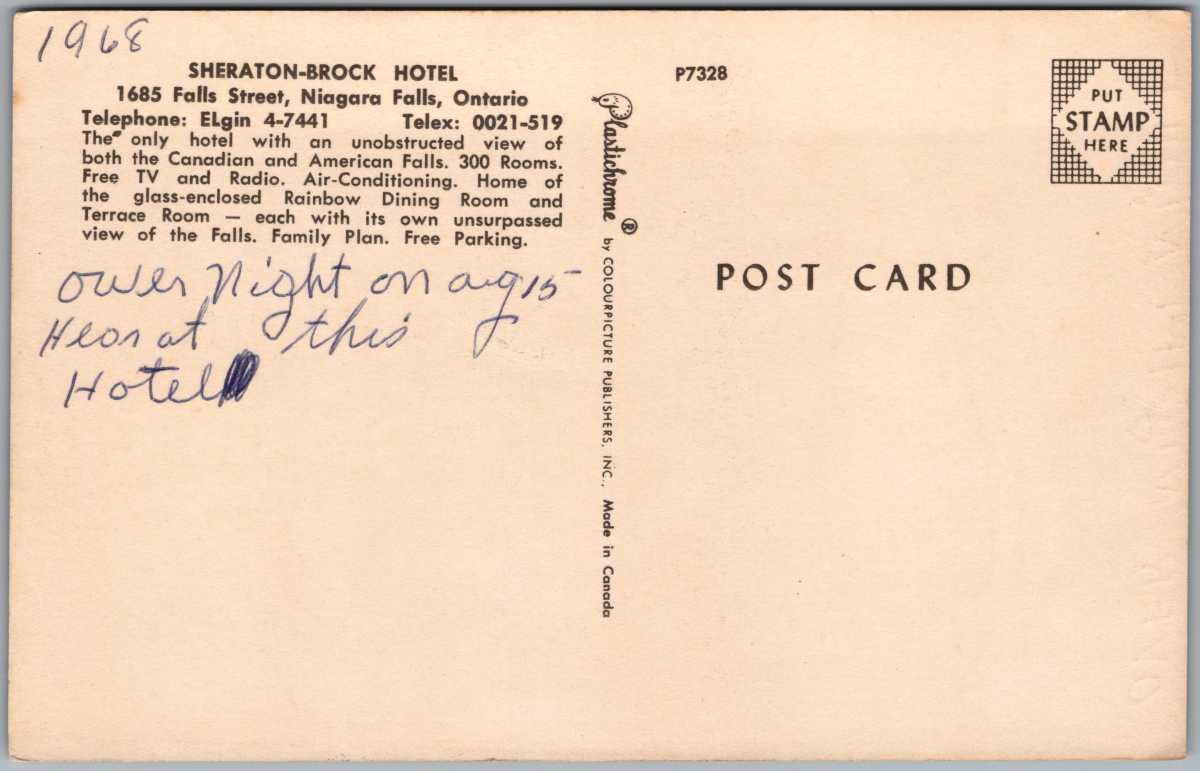 1968
SHERATON-BROCK HOTEL
1685 Falls Street, Niagara Falls, Ontario
Telephone: ELgin 4-7441 Telex: 0021-519
The only hotel with an unobstructed view of
both the Canadian and American Falls. 300 Rooms.
Free TV and Radio. Air-Conditioning. Home of
the glass-enclosed Rainbow Dining Room and
Terrace Room — each with its own unsurpassed
view of the Falls. Family Plan. Free Parking.
over Night on aug 15
Hear at this
Hotel
Plastichrome® by COLOURPICTURE PUBLISHERS, INC., Made in Canada
P7328
PUT
STAMP
HERE
POST CARD